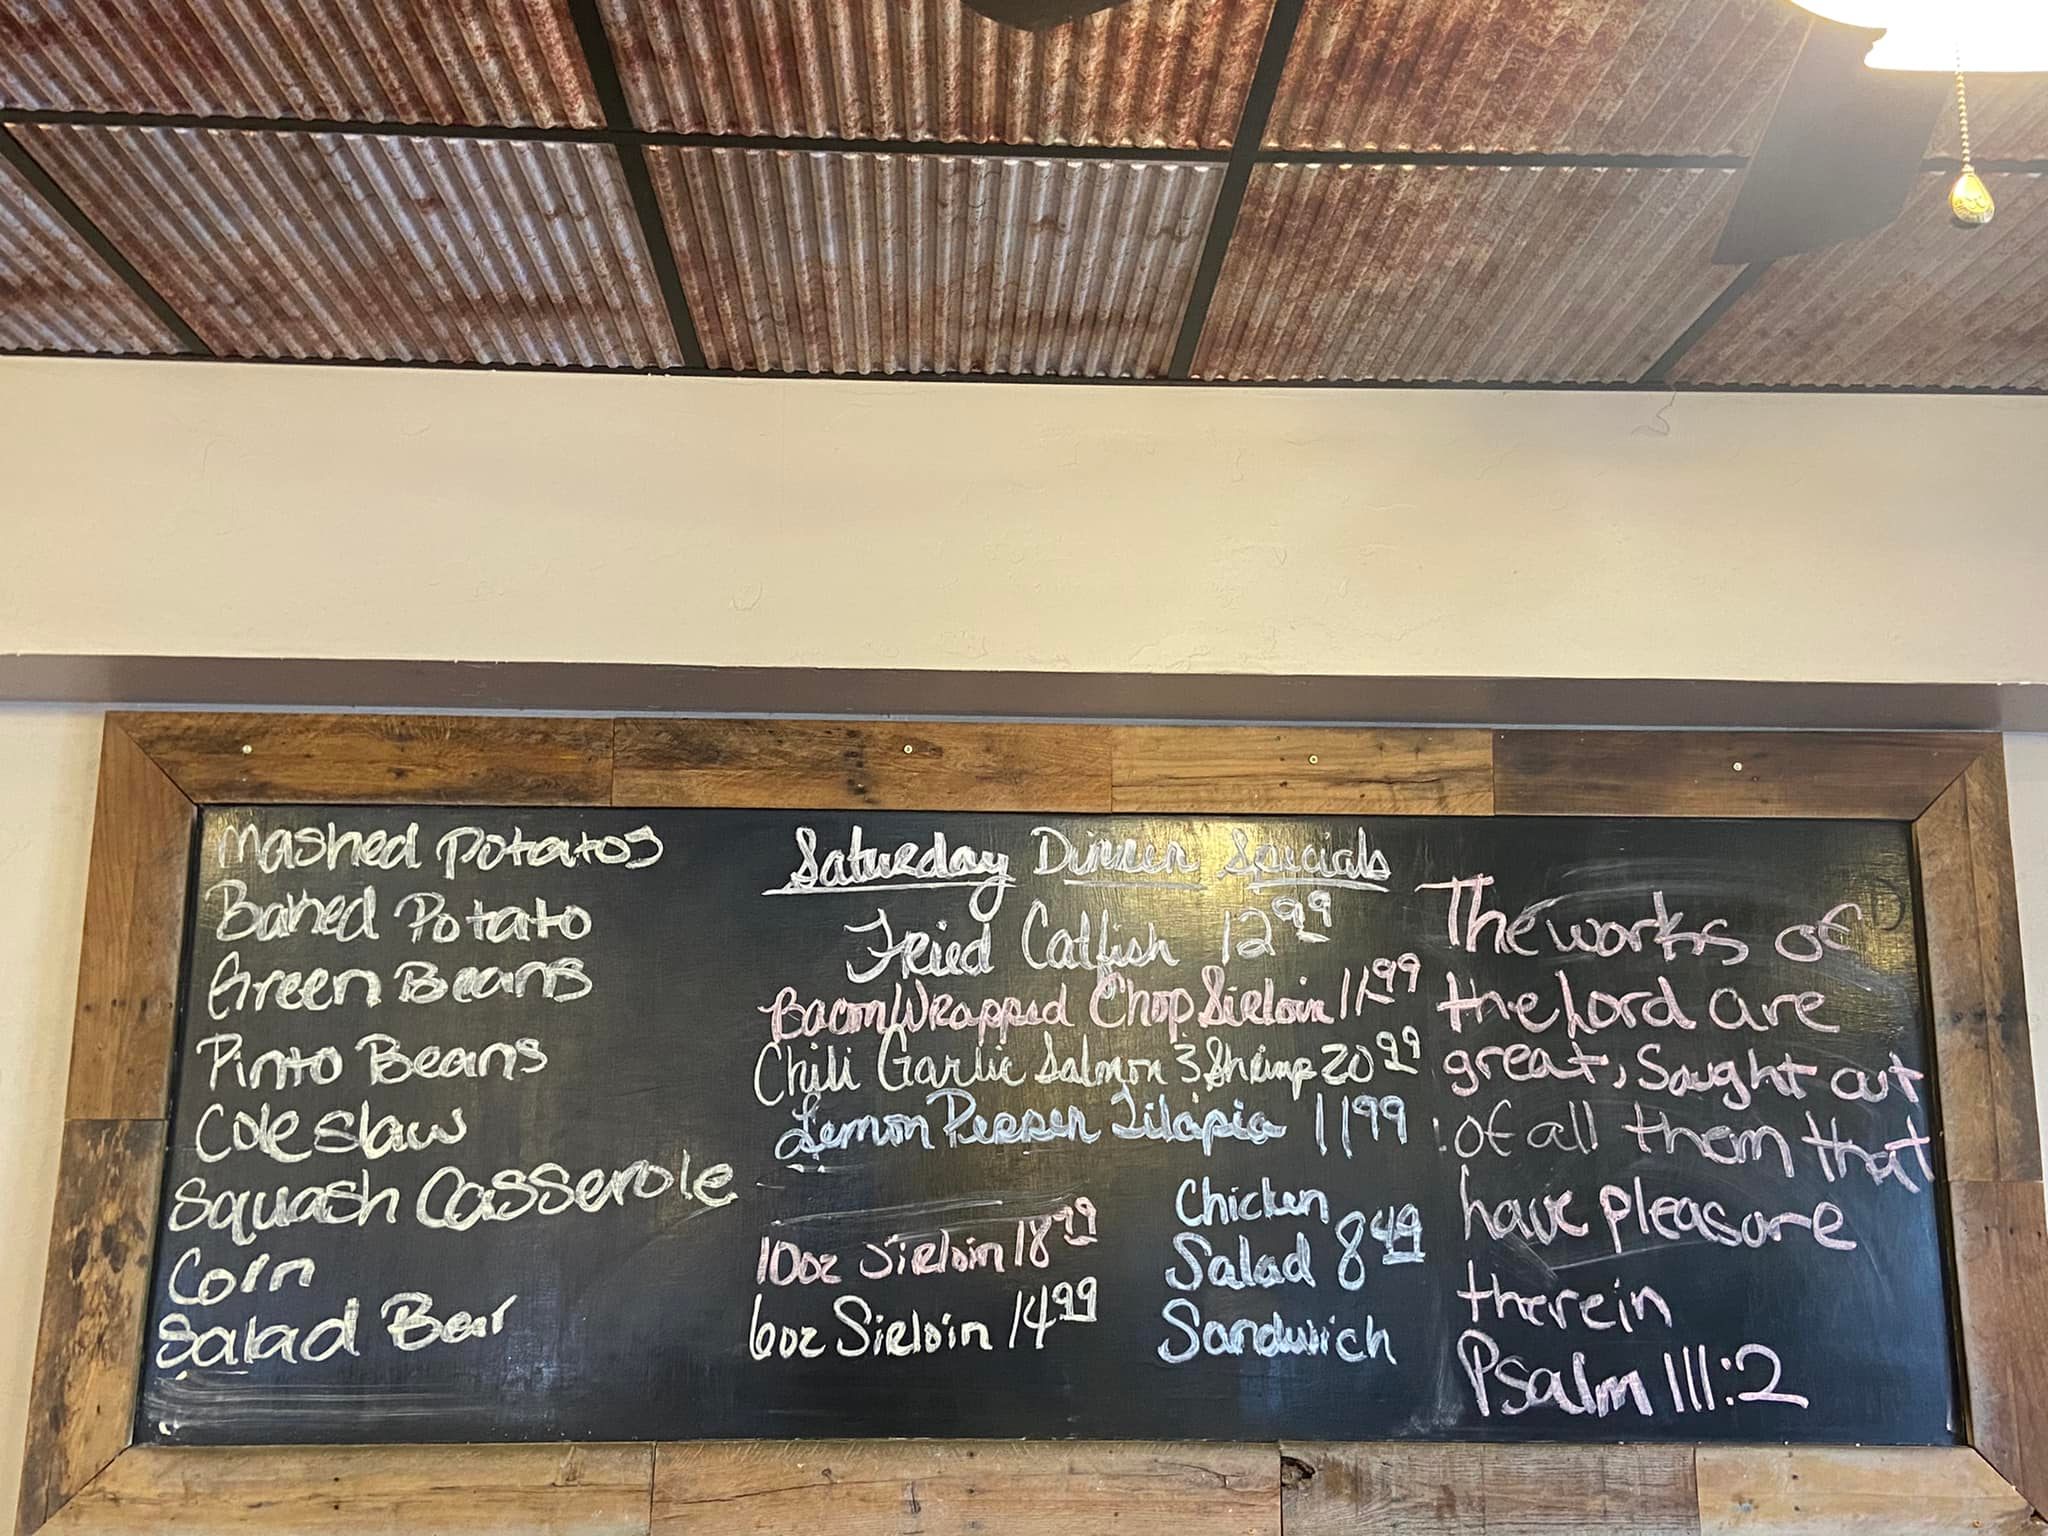 Mashed Potatos
Baked Potato
Green Beans
Pinto Beans
Cole slaw
Squash Casserole
Corn
Salad Bar
Saturday Dinner Specials
Fried Catfish 12.99
Bacon Wrapped Chop Sirloin 11.99
Chili Garlic Salmon 3 Shrimp 20.99
Lemon Pepper Tilapia 11.99
10oz Sirloin 18.99
6oz Sirloin 14.99
Chicken
Salad 8.49
Sandwich
The works of
the Lord are
great, Sought out
of all them that
have pleasure
therein
Psalm 111:2